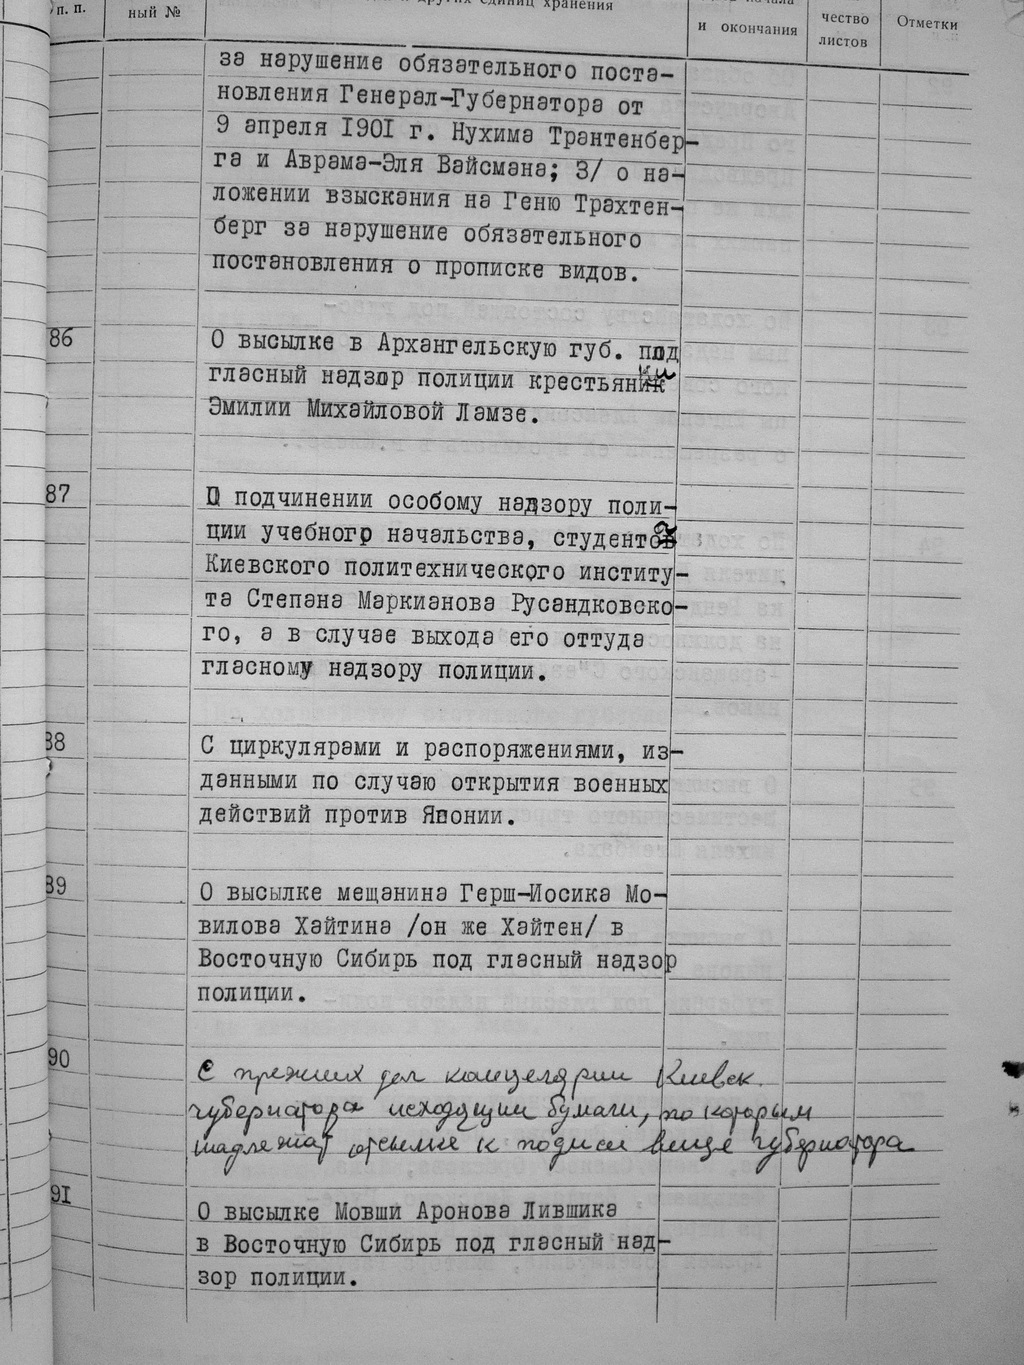 п. п.
ный №
и других единиц хранения
начала
и окончания
чество
листов
Отметки
за нарушение обязательного поста-
новления Генерал-Губернатора от
9 апреля 1901 г. Нухима Трантенбер-
га и Аврама-Эля Вайсмана; 3/ о на-
ложении взыскания на Геню Трахтен-
берг за нарушение обязательного
постановления о прописке видов.
86
О высылке в Архангельскую губ. под
гласный надзор полиции крестьянки
Эмилии Михайловой Ламзе.
87
О подчинении особому надзору поли-
ции учебного начальства, студента
Киевского политехнического институ-
та Степана Маркианова Русандковско-
го, а в случае выхода его оттуда
гласному надзору полиции.
88
С циркулярами и распоряжениями, из-
данными по случаю открытия военных
действий против Японии.
89
О высылке мещанина Герш-Иосика Мо-
вилова Хайтина /он же Хайтен/ в
Восточную Сибирь под гласный надзор
полиции.
90
С прежних дел канцелярии Киевск.
губернатора исходящии бумаги, по которым
отсылке к подписи вице губернатора
91
О высылке Мовши Аронова Лившика
в Восточную Сибирь под гласный над-
зор полиции.